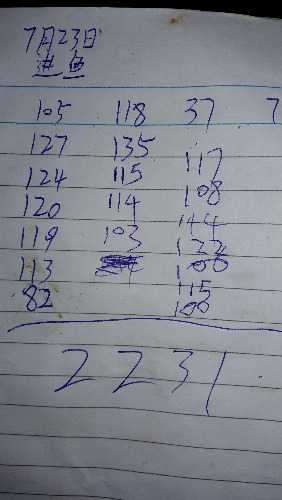 7月23日
105 118 37 7
127 135 117
124 115 108
120 114 144
119 103 122
113 100
82 115
100
2231